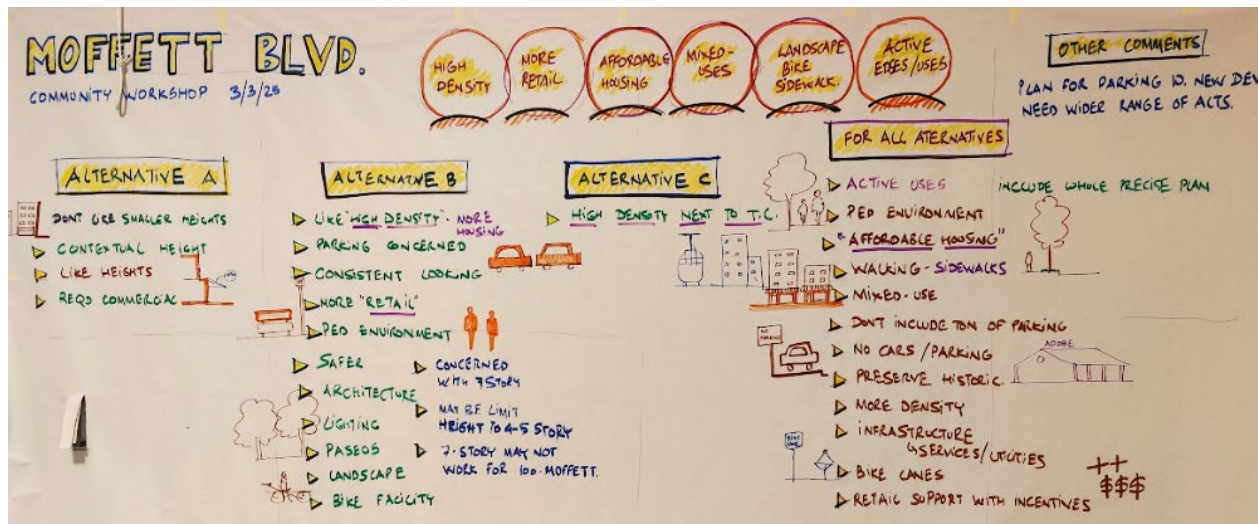 MOFFETT BLVD.
COMMUNITY WORKSHOP 3/3/25
HIGH
DENSITY
MORE
RETAIL
AFFORDABLE
HOUSING
MIXED-
USES
LANDSCAPE
BIKE
SIDEWALK.
ACTIVE
EDGES/USES
OTHER COMMENTS
PLAN FOR PARKING W. NEW DEV
NEED WIDER RANGE OF ACTS.
ALTERNATIVE A
DONT LIKE SMALLER HEIGHTS
CONTEXTUAL HEIGHT
LIKE HEIGHTS
REQD COMMERCIAL
ALTERNATIVE B
LIKE "HIGH DENSITY". MORE
HOUSING
PARKING CONCERNED
CONSISTENT LOOKING
MORE "RETAIL"
PED ENVIRONMENT
SAFER
ARCHITECTURE
LIGHTING
PASEOS
LANDSCAPE
BIKE FACILITY
CONCERNED
WITH 7 STORY
MAY BE LIMIT
HEIGHT TO 4-5 STORY
7-STORY MAY NOT
WORK FOR 100-MOFFETT.
ALTERNATIVE C
HIGH DENSITY NEXT TO T.C.
FOR ALL ATERNATIVES
ACTIVE USES
PED ENVIRONMENT
"AFFORDABLE HOUSING"
WALKING-SIDEWALKS
MIXED-USE
DONT INCLUDE TON OF PARKING
NO CARS/PARKING
PRESERVE HISTORIC.
MORE DENSITY
INFRASTRUCTURE
↳SERVICES/UTILITIES
BIKE LANES
RETAIL SUPPORT WITH INCENTIVES
INCLUDE WHOLE PRECISE PLAN
NO
PARKING
ADOBE
BIKE
LANE
++
$$$